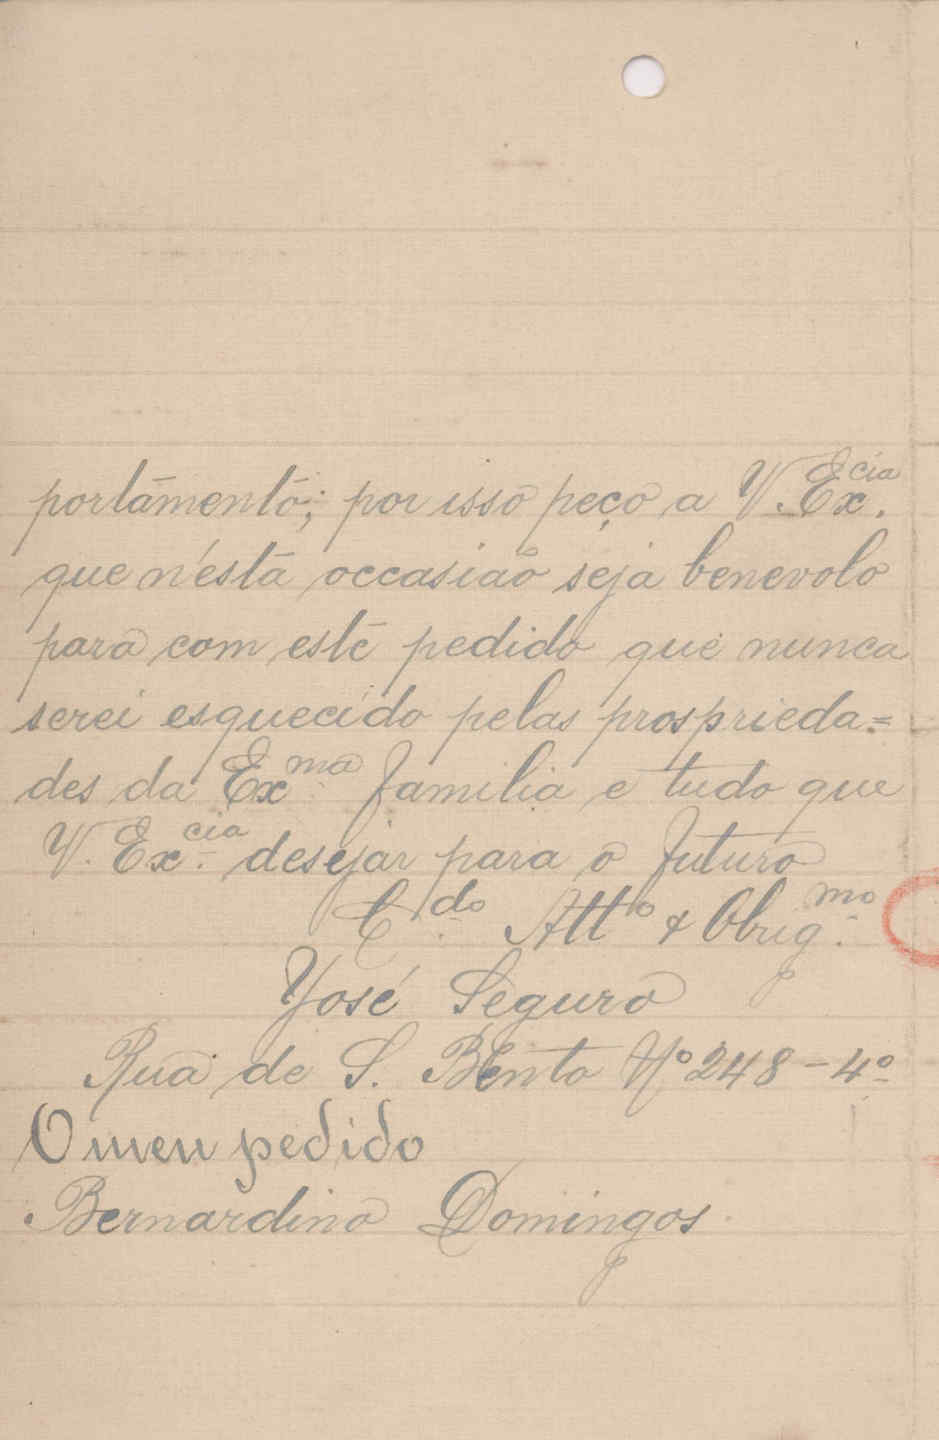 portamento; por isso peço a V. Ex.cia
que n'ésta occasião seja benevolo
para com esté pedido que nunca
serei esquecido pelas prosprieda=
des da Exma familia e tudo que
V. Ex.cia desejar para o futuro
C.do Atto & Obrig.mo
José Seguro
Rua de S. Bento Nº 248-4º
O meu pedido
Bernardino Domingos